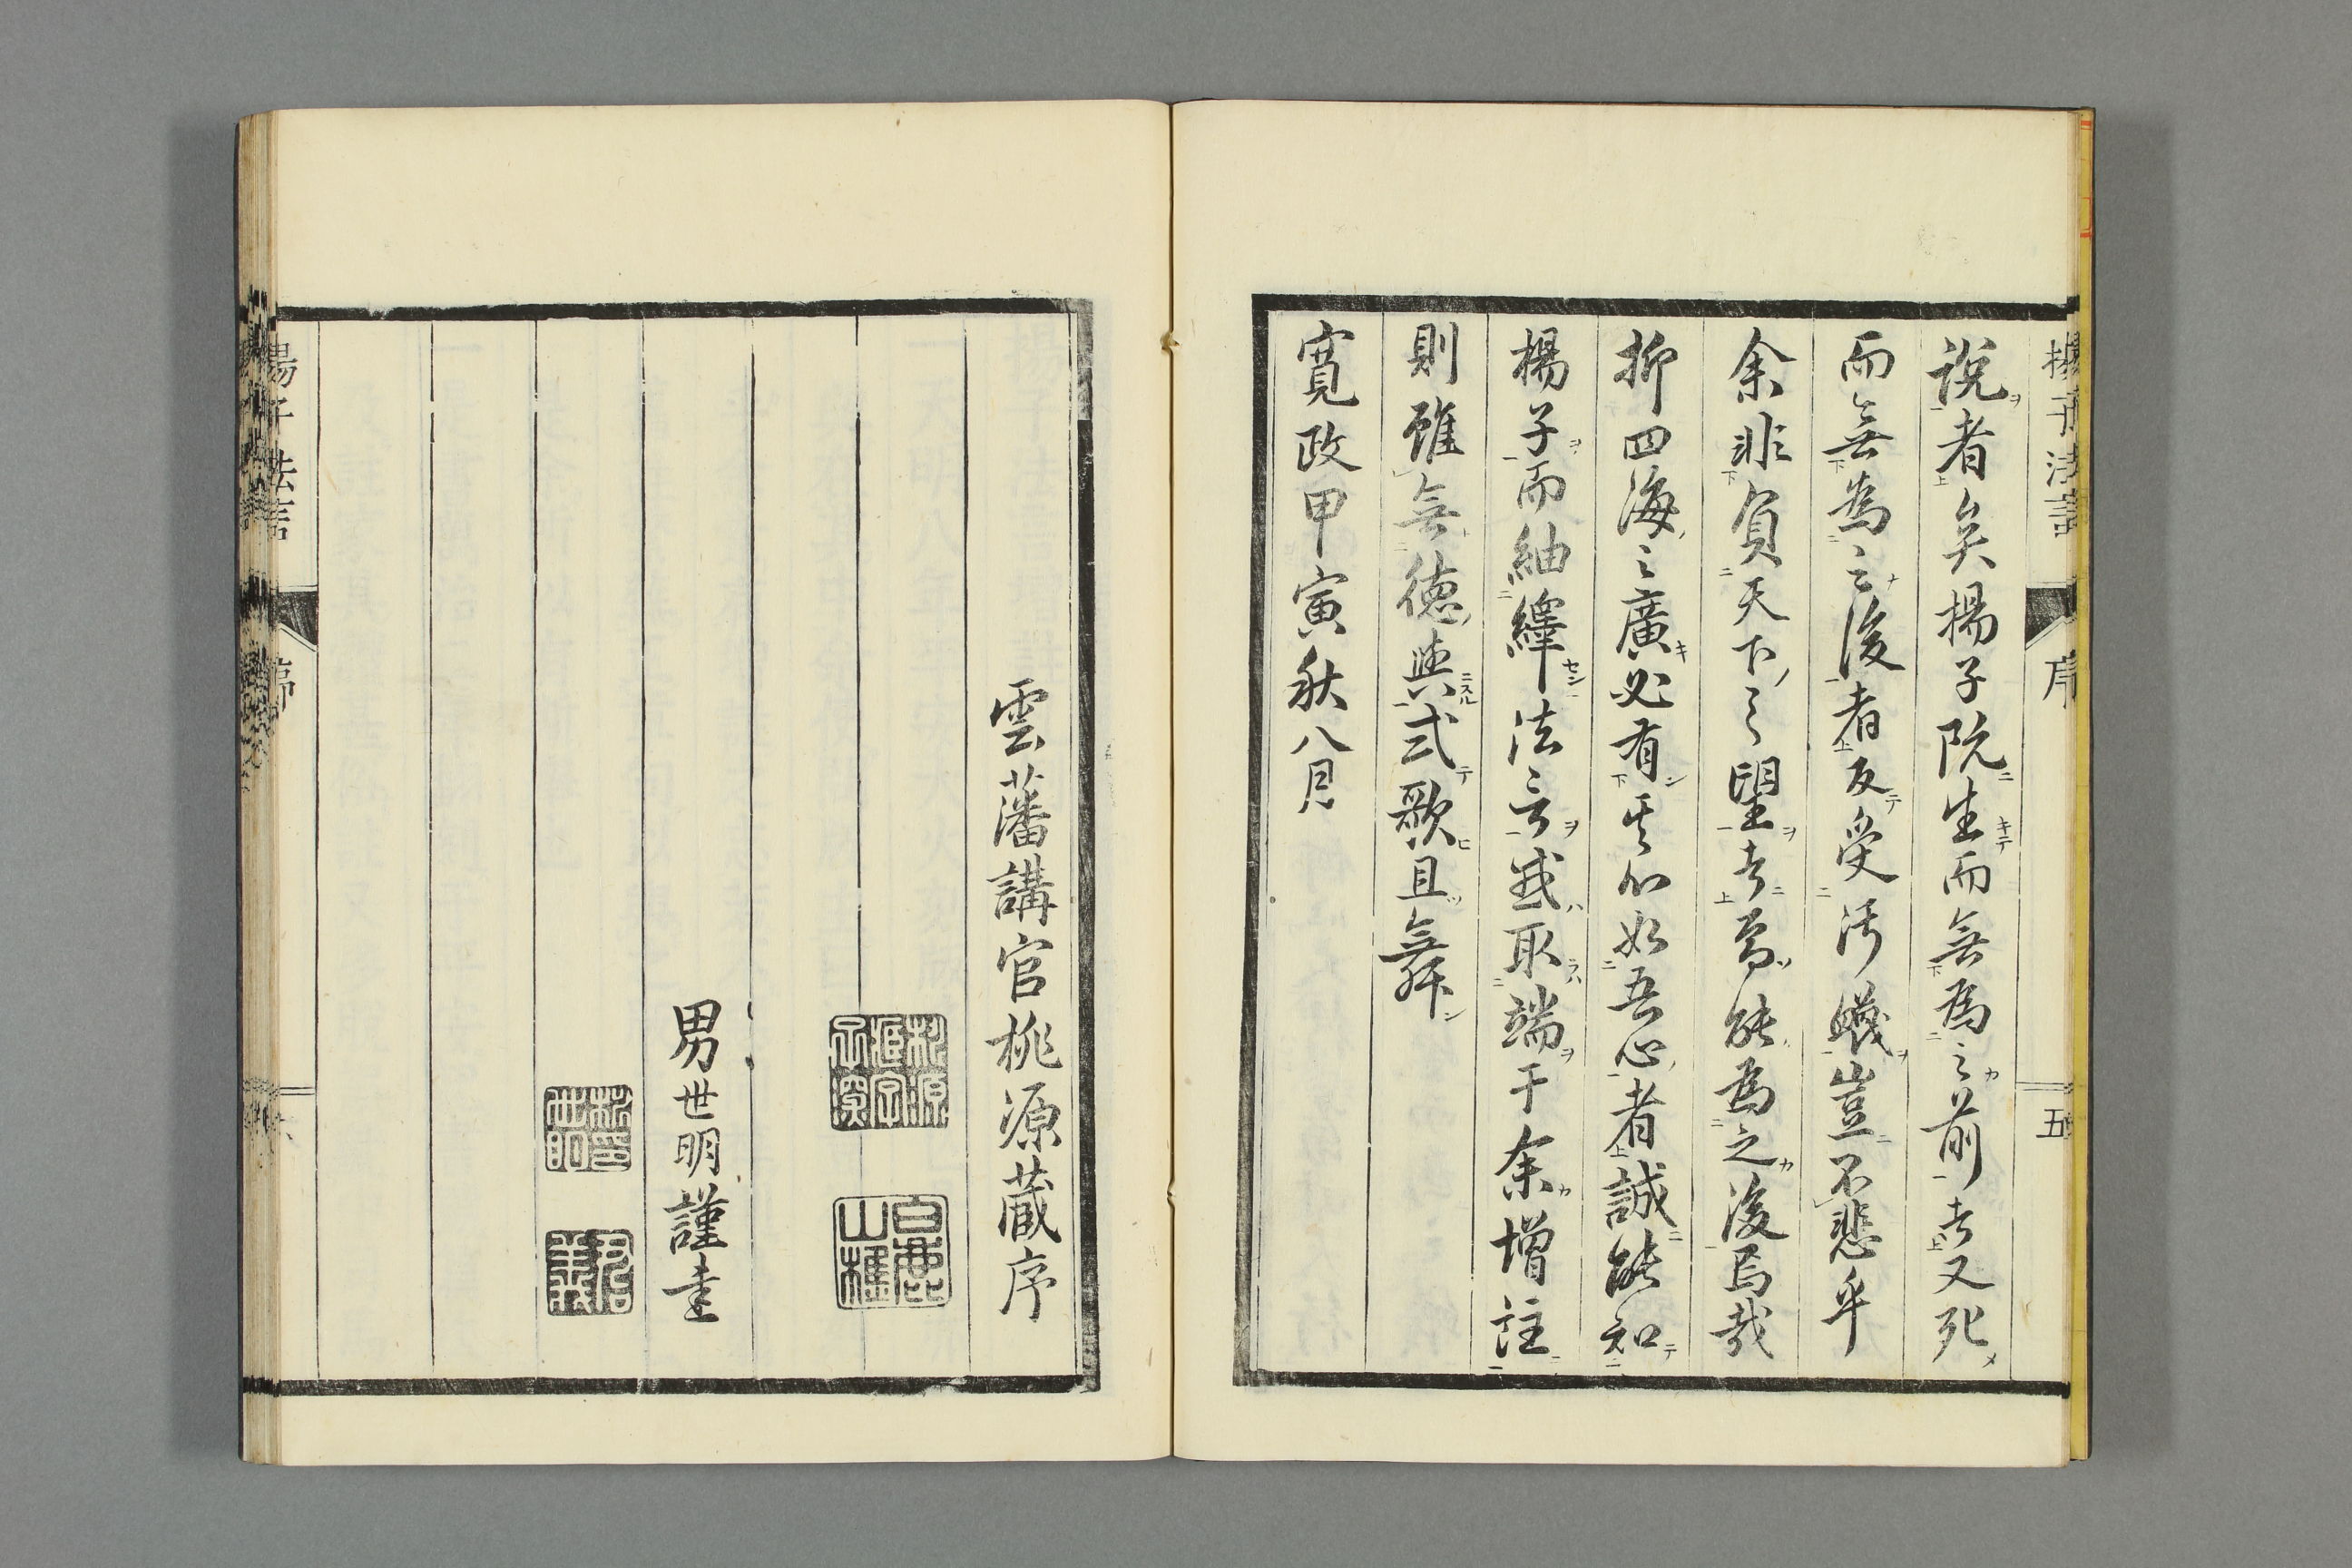 揚子法言 序 五
說者矣揚子既生而無為之前者又死
而無為之後者反受汚衊豈不悲乎
余非負天下之望者焉能為之後焉哉
抑四海之廣必有其心如吾心者誠能知
揚子而紬繹法言或取端于余增註
則雖無德與式歌且舞
寛政甲寅秋八月
雲藩講官桃源蔵序
白鹿山樵
男世明謹書
揚子法言 序